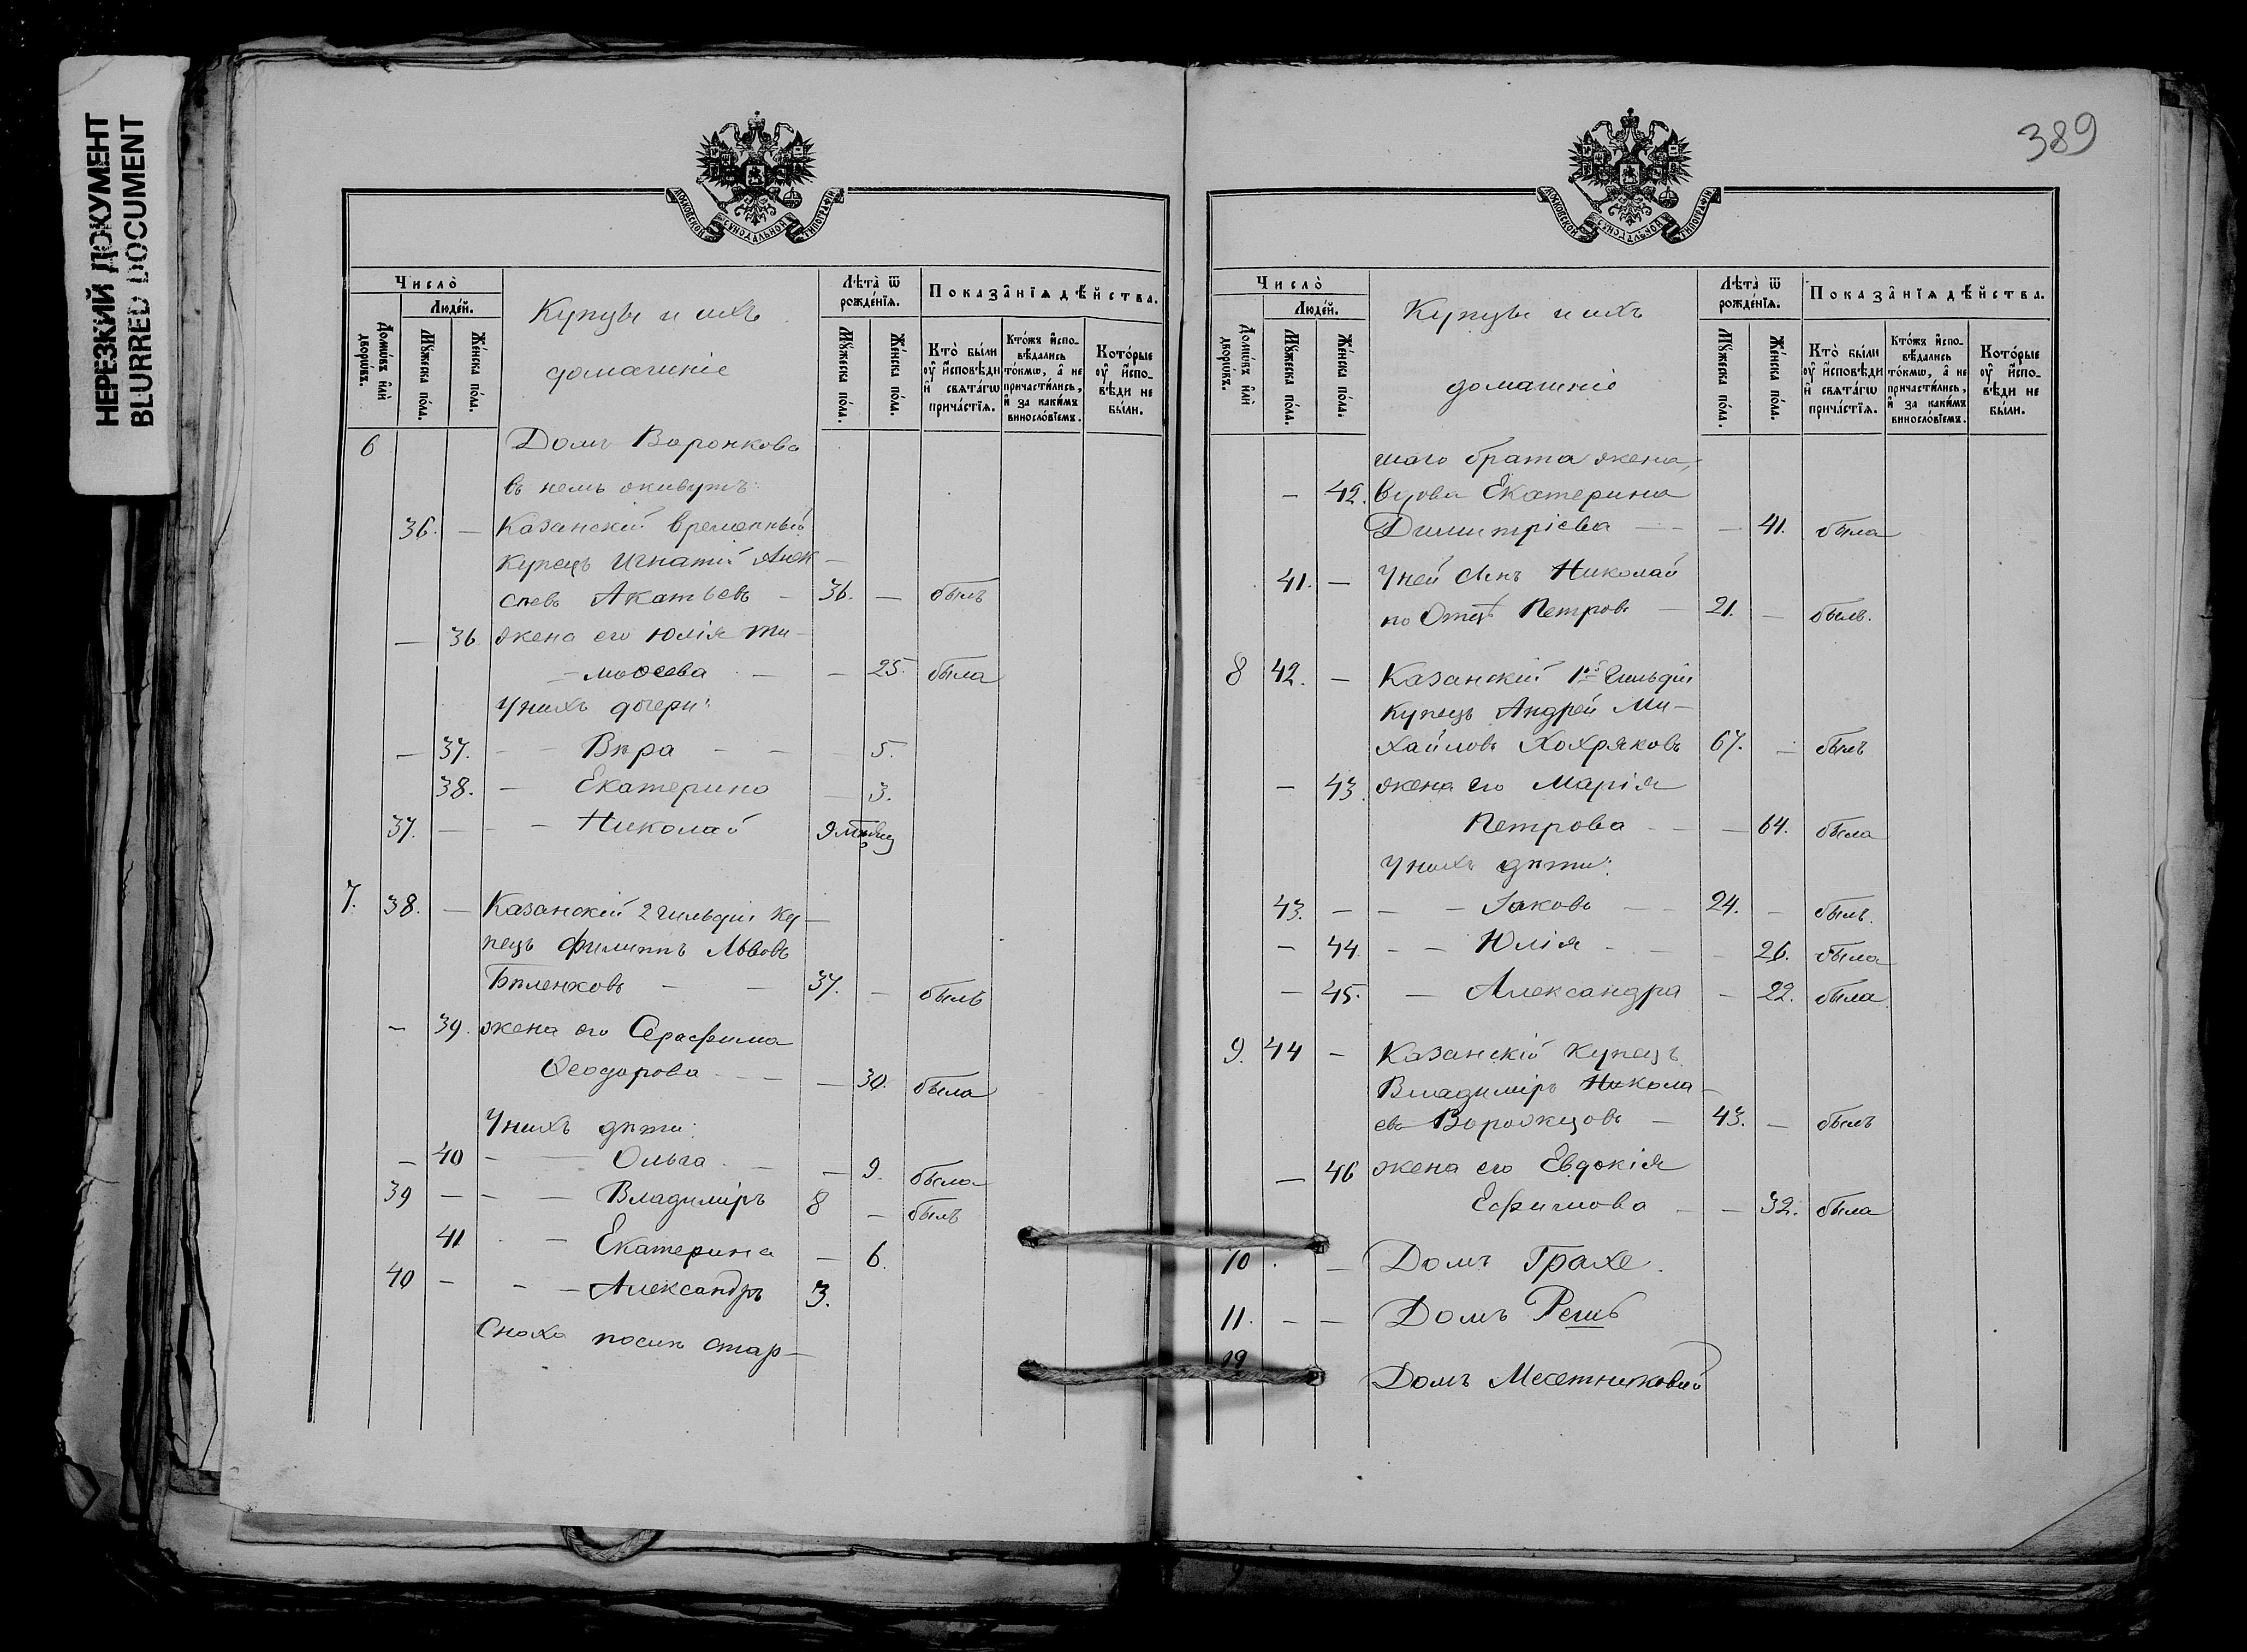 НЕРЕЗКИЙ ДОКУМЕНТ
BLURRED DOCUMENT
МОСКОВСКОЙ СѴНОДАЛЬНОЙ ТИПОГРАФІИ
Число̀
Люде́й.
Домѡ́въ и҆лѝ дворѡ́въ.
Мꙋ́жеска по́ла.
Же́нска по́ла.
Купцы и ихъ
домашніе
Лѣ́та ѿ рожде́нїѧ.
Мꙋ́жеска по́ла.
Же́нска по́ла.
Показа̑нїѧ дѣ́йства.
Кто̀ бы́ли оу҆ и҆сповѣди и҆ свѧта́гѡ прича́стїѧ.
Кто́жъ и҆спо-вѣдались то́кмѡ, а҆ не причасти́лись, и҆ за каки́мъ винослѡ́вїемъ.
Кото́рые оу҆ и҆спо-вѣди не бы́ли.
6 Домъ Воронкова
въ немъ живутъ:
36. — Казанскій временный
купецъ Игнатій Алек-
сѣевъ Акатьевъ — 36. — былъ
— 36 жена его Юлія Ти-
— моѳеева — — 25. была
У нихъ дочери:
— 37. — — Вѣра — — 5.
38. — Екатерина — 3.
37. — — — Николай 9 мѣсяц
7. 38. — Казанскій 2 гильдіи ку-
пецъ Филиппъ Львовъ
Бѣленковъ — — 37. — былъ
— 39. жена его Серафима
Ѳеодорова — — — 30. была
У нихъ дѣти:
— 40 — — Ольга — — 9. была
39 — — — Владиміръ 8 — былъ
41 — Екатерина — 6.
40 — — — Александръ 3.
Сноха послѣ стар-
389
МОСКОВСКОЙ СѴНОДАЛЬНОЙ ТИПОГРАФІИ
Число̀
Люде́й.
Домѡ́въ и҆лѝ дворѡ́въ.
Мꙋ́жеска по́ла.
Же́нска по́ла.
Купцы и ихъ
домашніе
Лѣ́та ѿ рожде́нїѧ.
Мꙋ́жеска по́ла.
Же́нска по́ла.
Показа̑нїѧ дѣ́йства.
Кто̀ бы́ли оу҆ и҆сповѣди и҆ свѧта́гѡ прича́стїѧ.
Кто́жъ и҆спо-вѣдались то́кмѡ, а҆ не причасти́лись, и҆ за каки́мъ винослѡ́вїемъ.
Кото́рые оу҆ и҆спо-вѣди не бы́ли.
шаго брата жена,
— 42. вдова Екатерина
Димитріева — — — 41. была
41. — У ней сынъ Николай
по Отцѣ Петровъ — 21. — былъ.
8 42. — Казанскій 1й гильдіи
купецъ Андрей Ми-
хайловъ Хохряковъ 67. — былъ
— 43. жена его Марія
Петрова — — 64. была
У нихъ дѣти:
43. — — — Іаковъ — 24. — былъ.
— 44 — — Юлія — — 26. была
— 45. — Александра — 22. была
9. 44 — Казанскій купецъ
Владиміръ Никола-
евъ Ворожцовъ — 43. — былъ
— 46 жена его Евдокія
Ефимова — — 32. была
10. — Домъ Грахе.
11. — — Домъ Решъ
12 Домъ Месетниковой